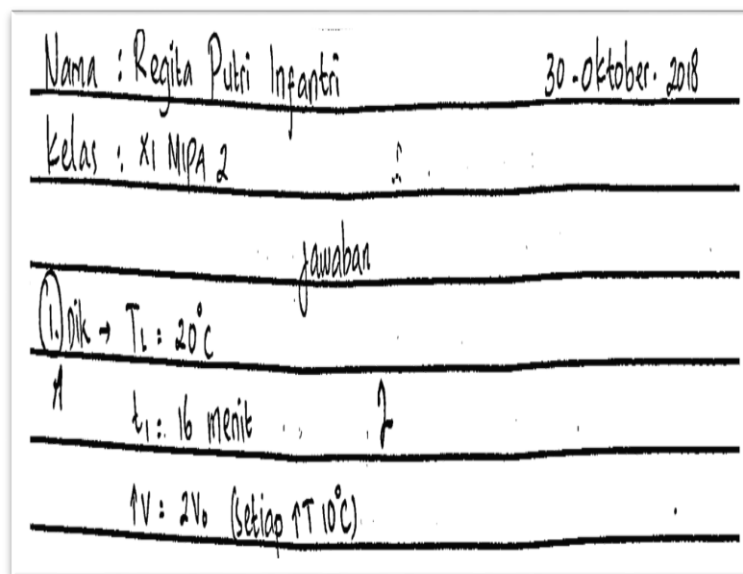 Nama : Regita Putri Infantri 30 - Oktober - 2018
Kelas : XI MIPA 2
Jawaban
1. Dik → T1 : 20°C
A
t1 : 16 menit
↑V : 2V0 (setiap ↑T 10°C)